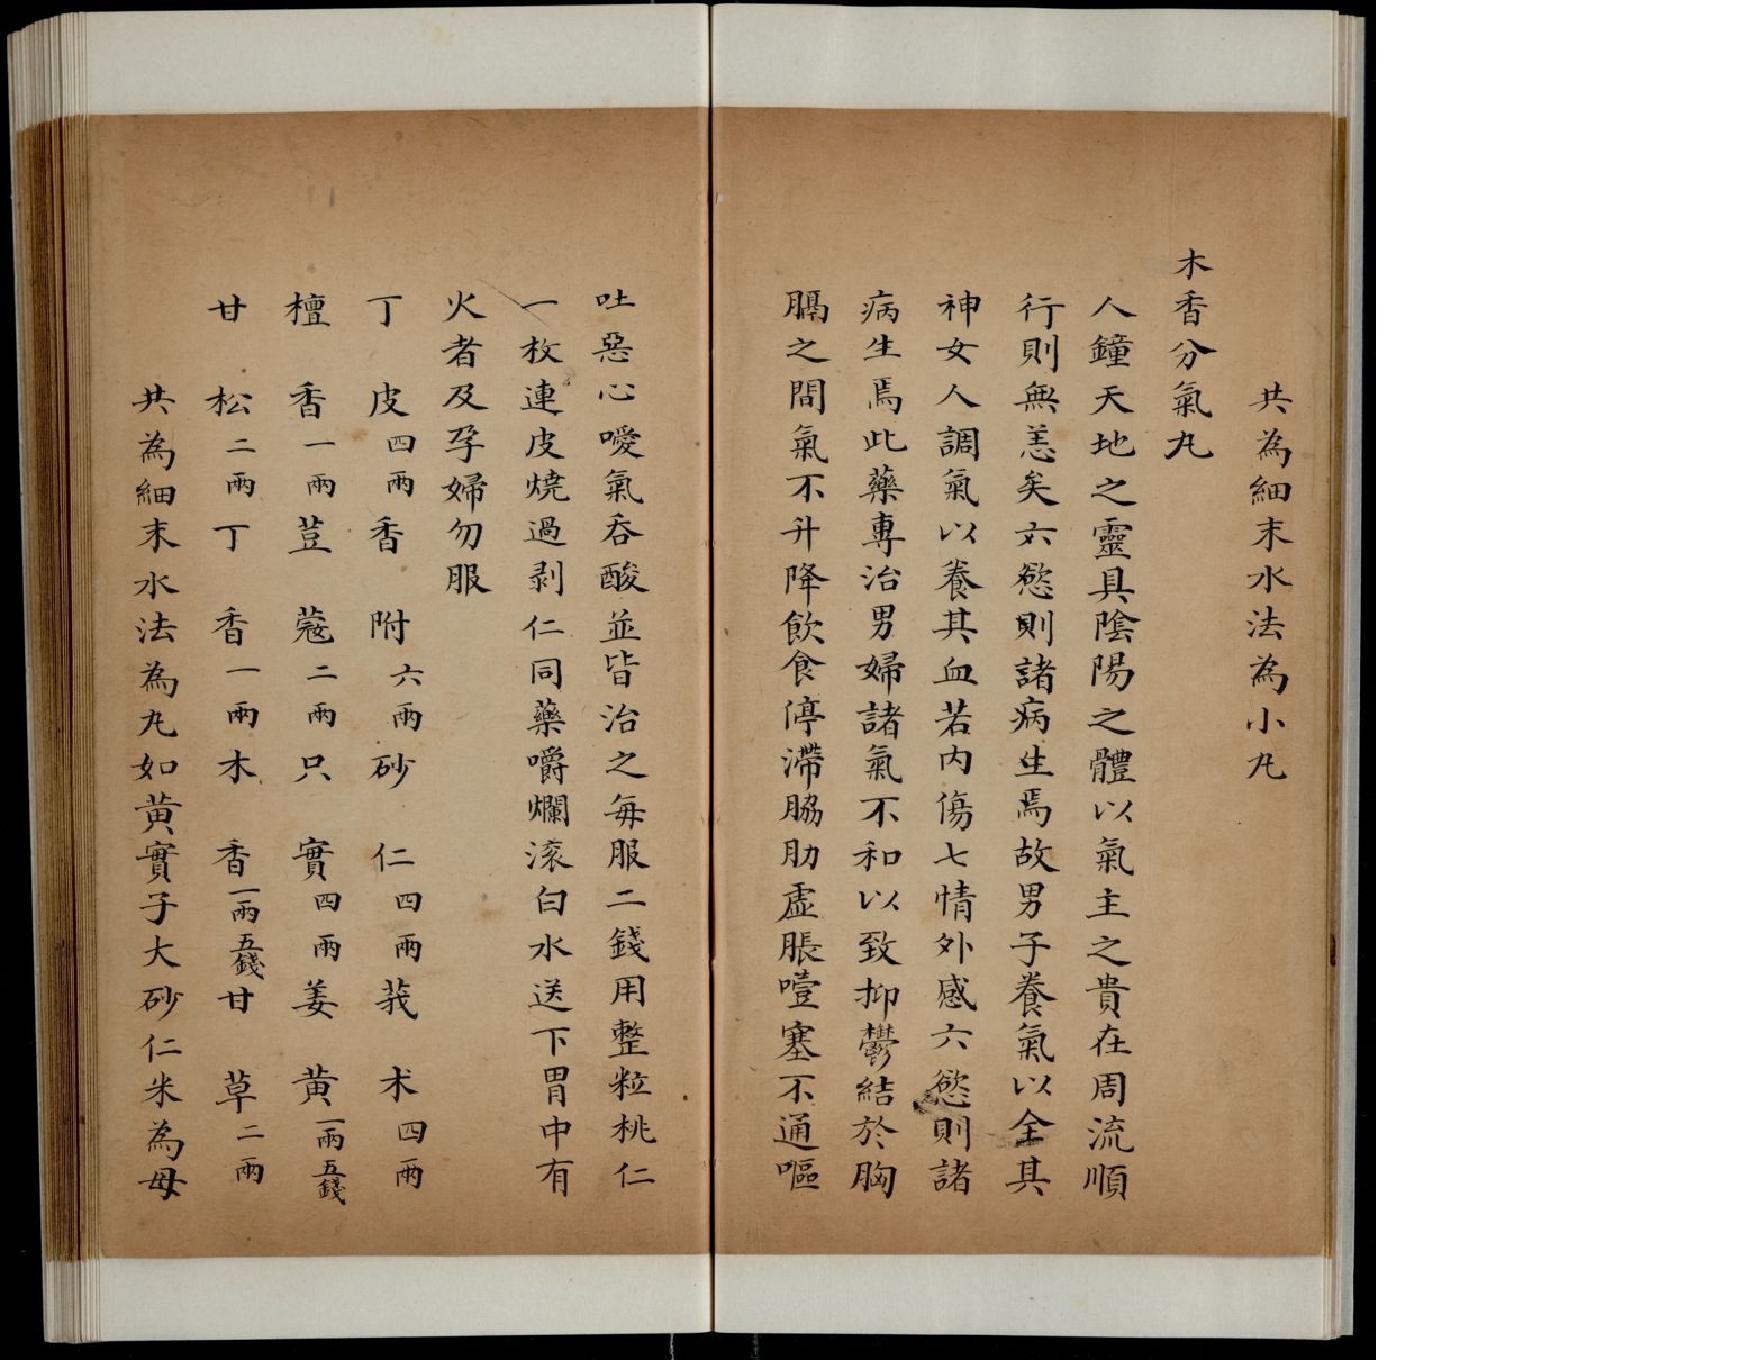 共為細末水法為小丸
木香分氣丸
人鐘天地之靈具陰陽之體以氣主之貴在周流順
行則無恙矣六慾則諸病生焉故男子養氣以全其
神女人調氣以養其血若内傷七情外感六慾則諸
病生焉此藥專治男婦諸氣不和以致抑鬱結於胸
膈之間氣不升降飲食停滯脇肋虛脹噎塞不通嘔
吐惡心噯氣吞酸並皆治之每服二錢用整粒桃仁
一枚連皮燒過剥仁同藥嚼爛滚白水送下胃中有
火者及孕婦勿服
丁皮四兩香附六兩砂仁四兩莪术四兩
檀香一兩荳蔻二兩只實四兩姜黄一兩五錢
甘松二兩丁香一兩木香一兩五錢甘草二兩
共為細末水法為丸如黄實子大砂仁米為母